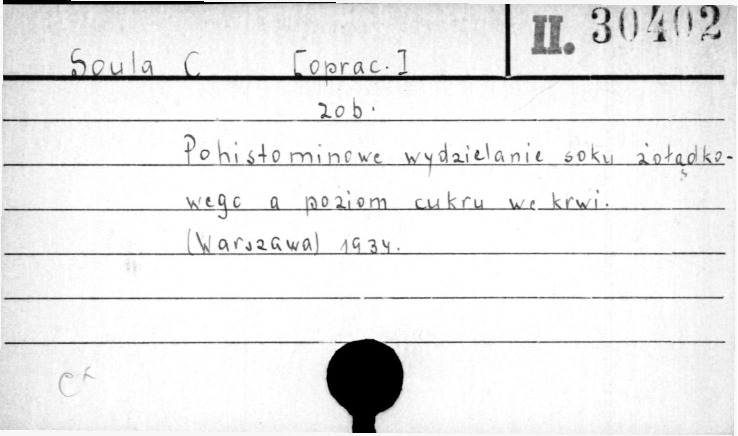 II. 30402
Soula C [oprac.]
zob.
Pohistaminowe wydzielanie soku żołądko-
wego a poziom cukru we krwi.
(Warszawa) 1934.